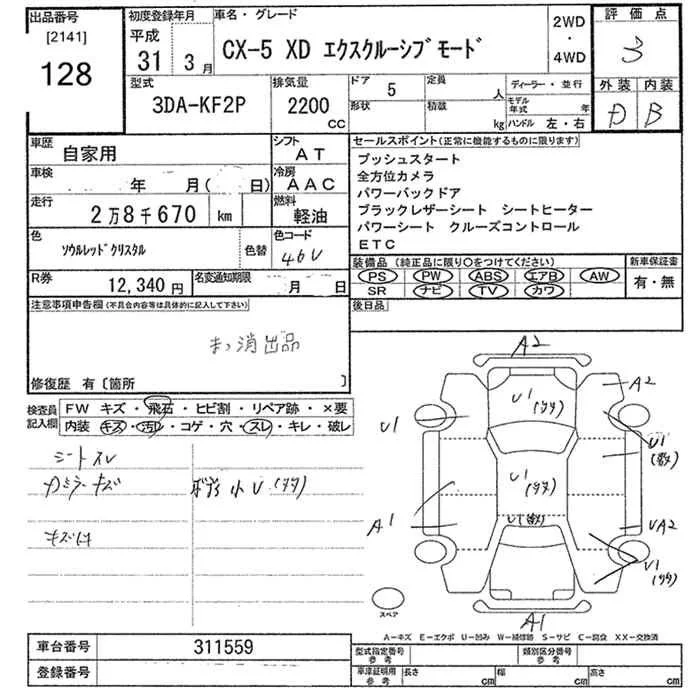 出品番号
[2141]
128
初度登録年月
平成
31年 3月
車名・グレード
CX-5 XD エクスクルーシブモード
2WD
・
4WD
評価点
3
外装 内装
D B
型式
3DA-KF2P
排気量
2200
CC
ドア 5
定員 人
形状
積載 kg
ディーラー・並行
モデル年式 年
ハンドル 左・右
車歴
自家用
シフト
AT
車検
年 月( 日)
冷房
AAC
走行
2万8千670 km
燃料
軽油
色
ソウルレッドクリスタル
色替
色コード
46V
R券
12,340 円
名変通知期限
月 日
セールスポイント(正常に機能するものに限ります)
プッシュスタート
全方位カメラ
パワーバックドア
ブラックレザーシート シートヒーター
パワーシート クルーズコントロール
ETC
装備品(純正品に限り○をつけてください)
PS PW ABS エアB AW
SR ナビ TV カワ
新車保証書
有・無
後日品
注意事項申告欄(不具合内容等は具体的に記入して下さい)
まっ消出品
修復歴 有〔箇所 〕
検査員
記入欄
FW キズ・飛石・ヒビ割・リペア跡・×要
内装 キズ・汚レ・コゲ・穴・スレ・キレ・破レ
シートスレ
カミラーキズ
ボディ小U(タタ)
A2
U1
(タタ)
A2
U1
U1
(数)
U1
(タタ)
A1
U(数)
UA2
U1
(タタ)
A1
スペア
A-キズ E-エクボ U-凹み W-補修跡 S-サビ C-腐食 XX-交換済
車台番号
311559
登録番号
型式指定番号
参考
類別区分番号
参考
車庫証明用
参考
長さ cm
幅 cm
高さ cm